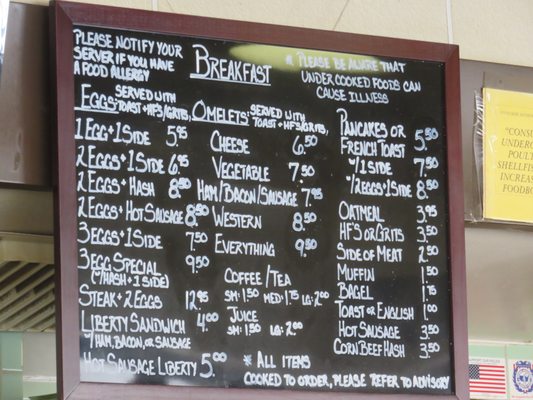 PLEASE NOTIFY YOUR
SERVER IF YOU HAVE
A FOOD ALLERGY
BREAKFAST
* PLEASE BE AWARE THAT
UNDER COOKED FOODS CAN
CAUSE ILLNESS
EGGS: SERVED WITH
TOAST + HFS/GRITS,
1 EGG + 1 SIDE 5.95
2 EGGS + 1 SIDE 6.95
2 EGGS + HASH 8.50
2 EGGS + HOT SAUSAGE 8.50
3 EGGS + 1 SIDE 7.50
3 EGG SPECIAL 9.50
(W/HASH + 1 SIDE)
STEAK + 2 EGGS 12.95
LIBERTY SANDWICH 4.00
W/HAM, BACON, OR SAUSAGE
HOT SAUSAGE LIBERTY 5.00
OMELETS: SERVED WITH
TOAST + HFS/GRITS,
CHEESE 6.50
VEGETABLE 7.50
HAM/BACON/SAUSAGE 7.95
WESTERN 8.50
EVERYTHING 9.50
COFFEE/TEA
SM: 1.50 MED: 1.75 LG: 2.00
JUICE
SM: 1.50 LG: 2.00
* ALL ITEMS
COOKED TO ORDER, PLEASE REFER TO ADVISORY
PANCAKES OR
FRENCH TOAST 5.50
W/1 SIDE 7.50
W/2 EGGS + 1 SIDE 8.50
OATMEAL 3.95
HF'S OR GRITS 3.50
SIDE OF MEAT 2.50
MUFFIN 1.50
BAGEL 1.75
TOAST OR ENGLISH 1.00
HOT SAUSAGE 3.50
CORN BEEF HASH 3.50
"CONSU
UNDERCO
POULT
SHELLFIS
INCREAS
FOODBO